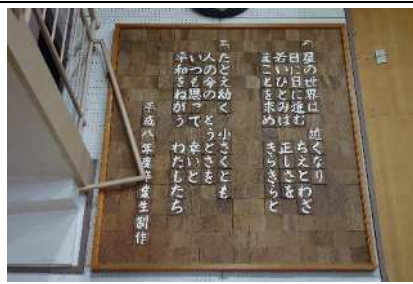 二 星の世界は 近くなり
日に日に進む ちえとわざ
若いひとみは 正しさを
まことを求め きらきらと
三 たとえ幼く 小さくとも
人の命の とうとさを
いつも思って 幸いと
平和をねがう わたしたち
平成八年度卒業生制作